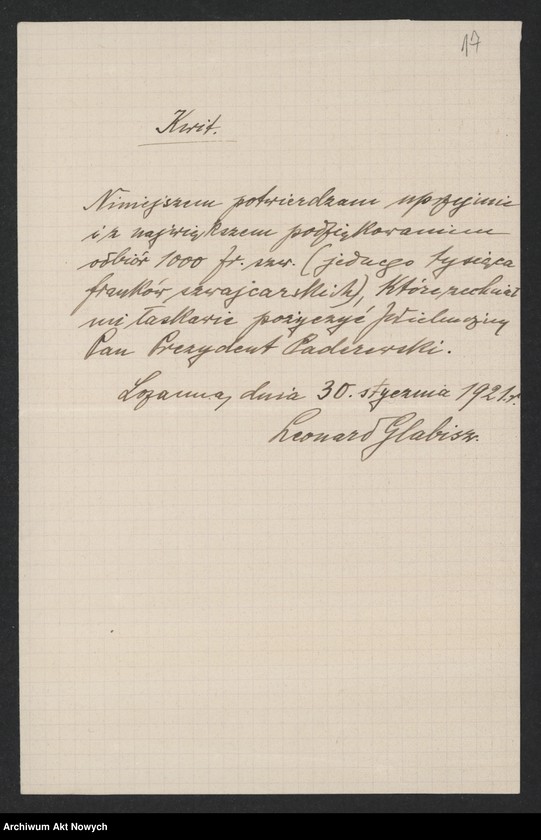 17
Kwit.
Niniejszem potwierdzam uprzejmie
i z największem podziękowaniem
odbiór 1000 fr. szw. (jednego tysiąca
franków szwajcarskich), które zechciał
mi łaskawie pożyczyć JWielmożny
Pan Prezydent Paderewski.
Lozanna, dnia 30. stycznia 1921.r.
Leonard Glabisz.
Archiwum Akt Nowych